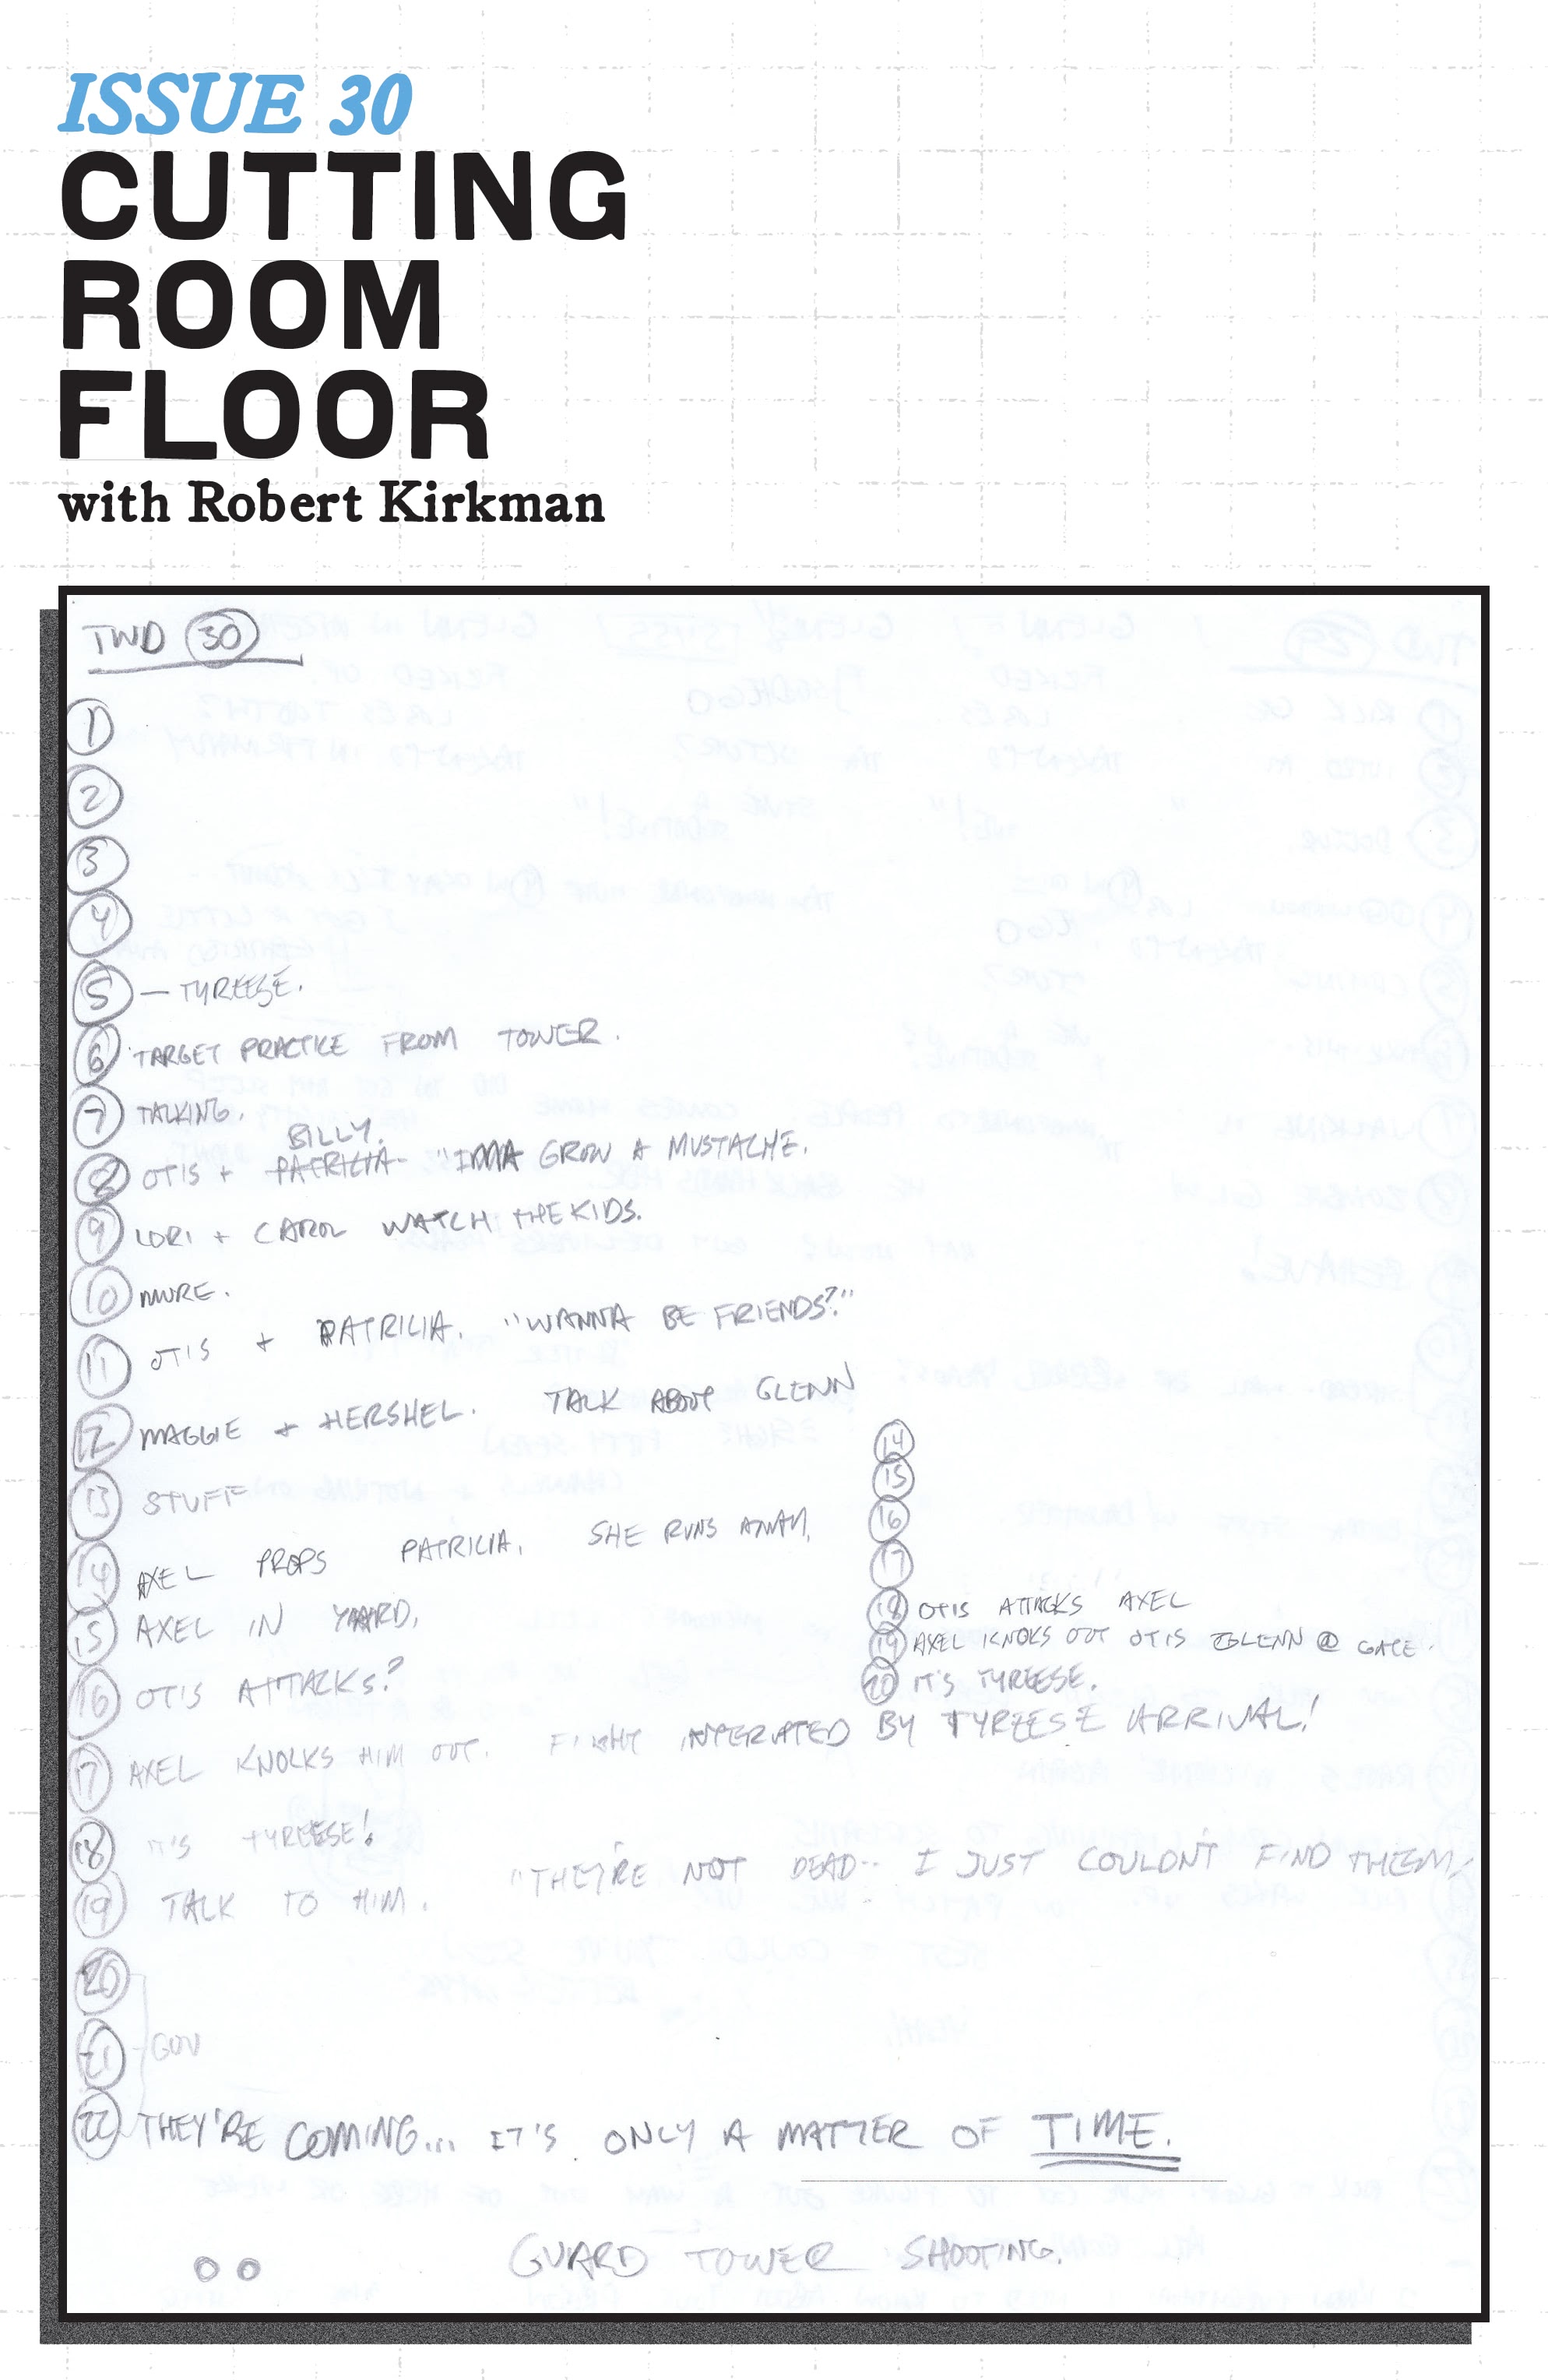 ISSUE 30
CUTTING
ROOM
FLOOR
with Robert Kirkman
TWD 30
1
2
3
4
5 — TYREESE.
6 TARGET PRACTICE FROM TOWER.
7 TALKING.
BILLY.
8 OTIS + PATRICIA "IMMA GROW A MUSTACHE.
9 LORI + CAROL WATCH THE KIDS.
10 MORE.
11 OTIS + PATRICIA. "WANNA BE FRIENDS?"
12 MAGGIE + HERSHEL. TALK ABOUT GLENN
13 STUFF
14 AXEL PROPS PATRICIA. SHE RUNS AWAY.
15 AXEL IN YAARD.
16 OTIS ATTACKS?
17 AXEL KNOCKS HIM OUT. FIGHT INTERATED BY TYREESE ARRIVAL!
18 IT'S TYREESE!
19 TALK TO HIM. "THEY'RE NOT DEAD.. I JUST COULDN'T FIND THEM.
20
21 GOV
22 THEY'RE COMING... IT'S ONLY A MATTER OF TIME.
14
15
16
17
18 OTIS ATTACKS AXEL
19 AXEL KNOKS OUT OTIS GLENN @ GATE.
20 IT'S TYREESE.
GUARD TOWER SHOOTING.